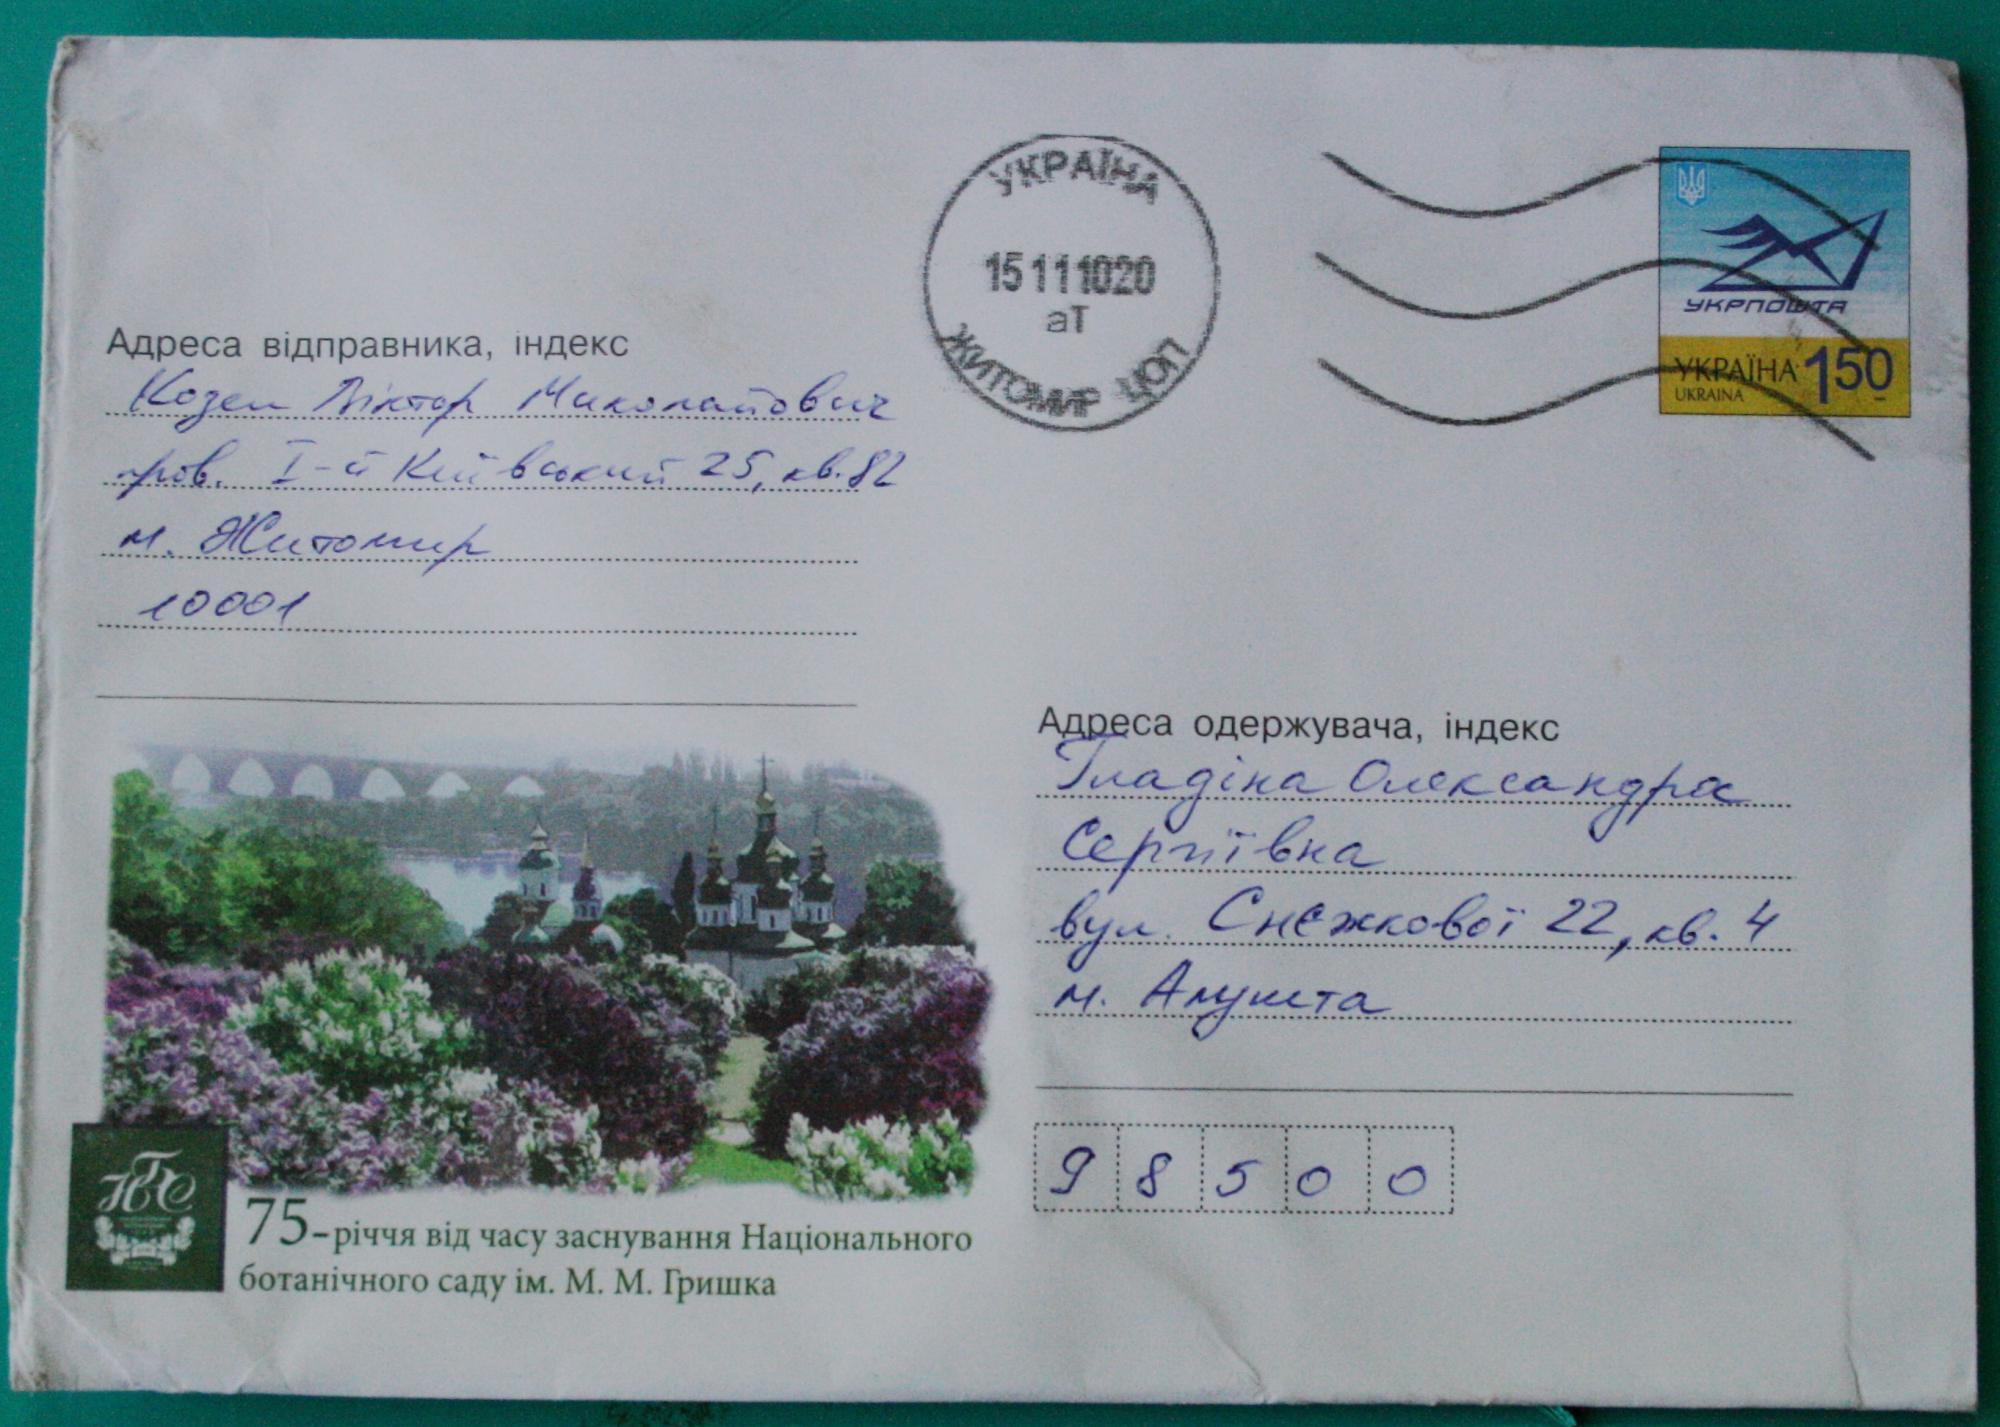 УКРАЇНА
15 11 10 20
аТ
ЖИТОМИР ЦОП
УКРПОШТА
УКРАЇНА 1 50
UKRAINA
Адреса відправника, індекс
Козел Віктор Миколайович
пров. І-й Київський 25, кв. 82
м. Житомир
10001
Адреса одержувача, індекс
Гладіна Олександра
Сергіївна
вул. Снєжкової 22, кв. 4
м. Алушта
98500
НБС
75-річчя від часу заснування Національного
ботанічного саду ім. М. М. Гришка